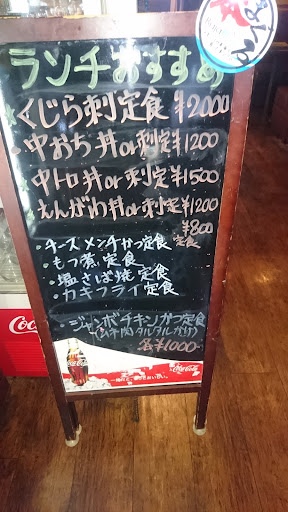 ランチおすすめ
くじら刺定食 ¥2000
・中おち丼or刺定¥1200
中トロ丼or刺定¥1500
えんがわ丼or刺定¥1200
¥800
定食
・チーズメンチかつ定食
・もつ煮定食
・塩さば焼定食
・カキフライ定食
・ジャンボチキンかつ定食
各¥1000
Coca-Cola
Coc